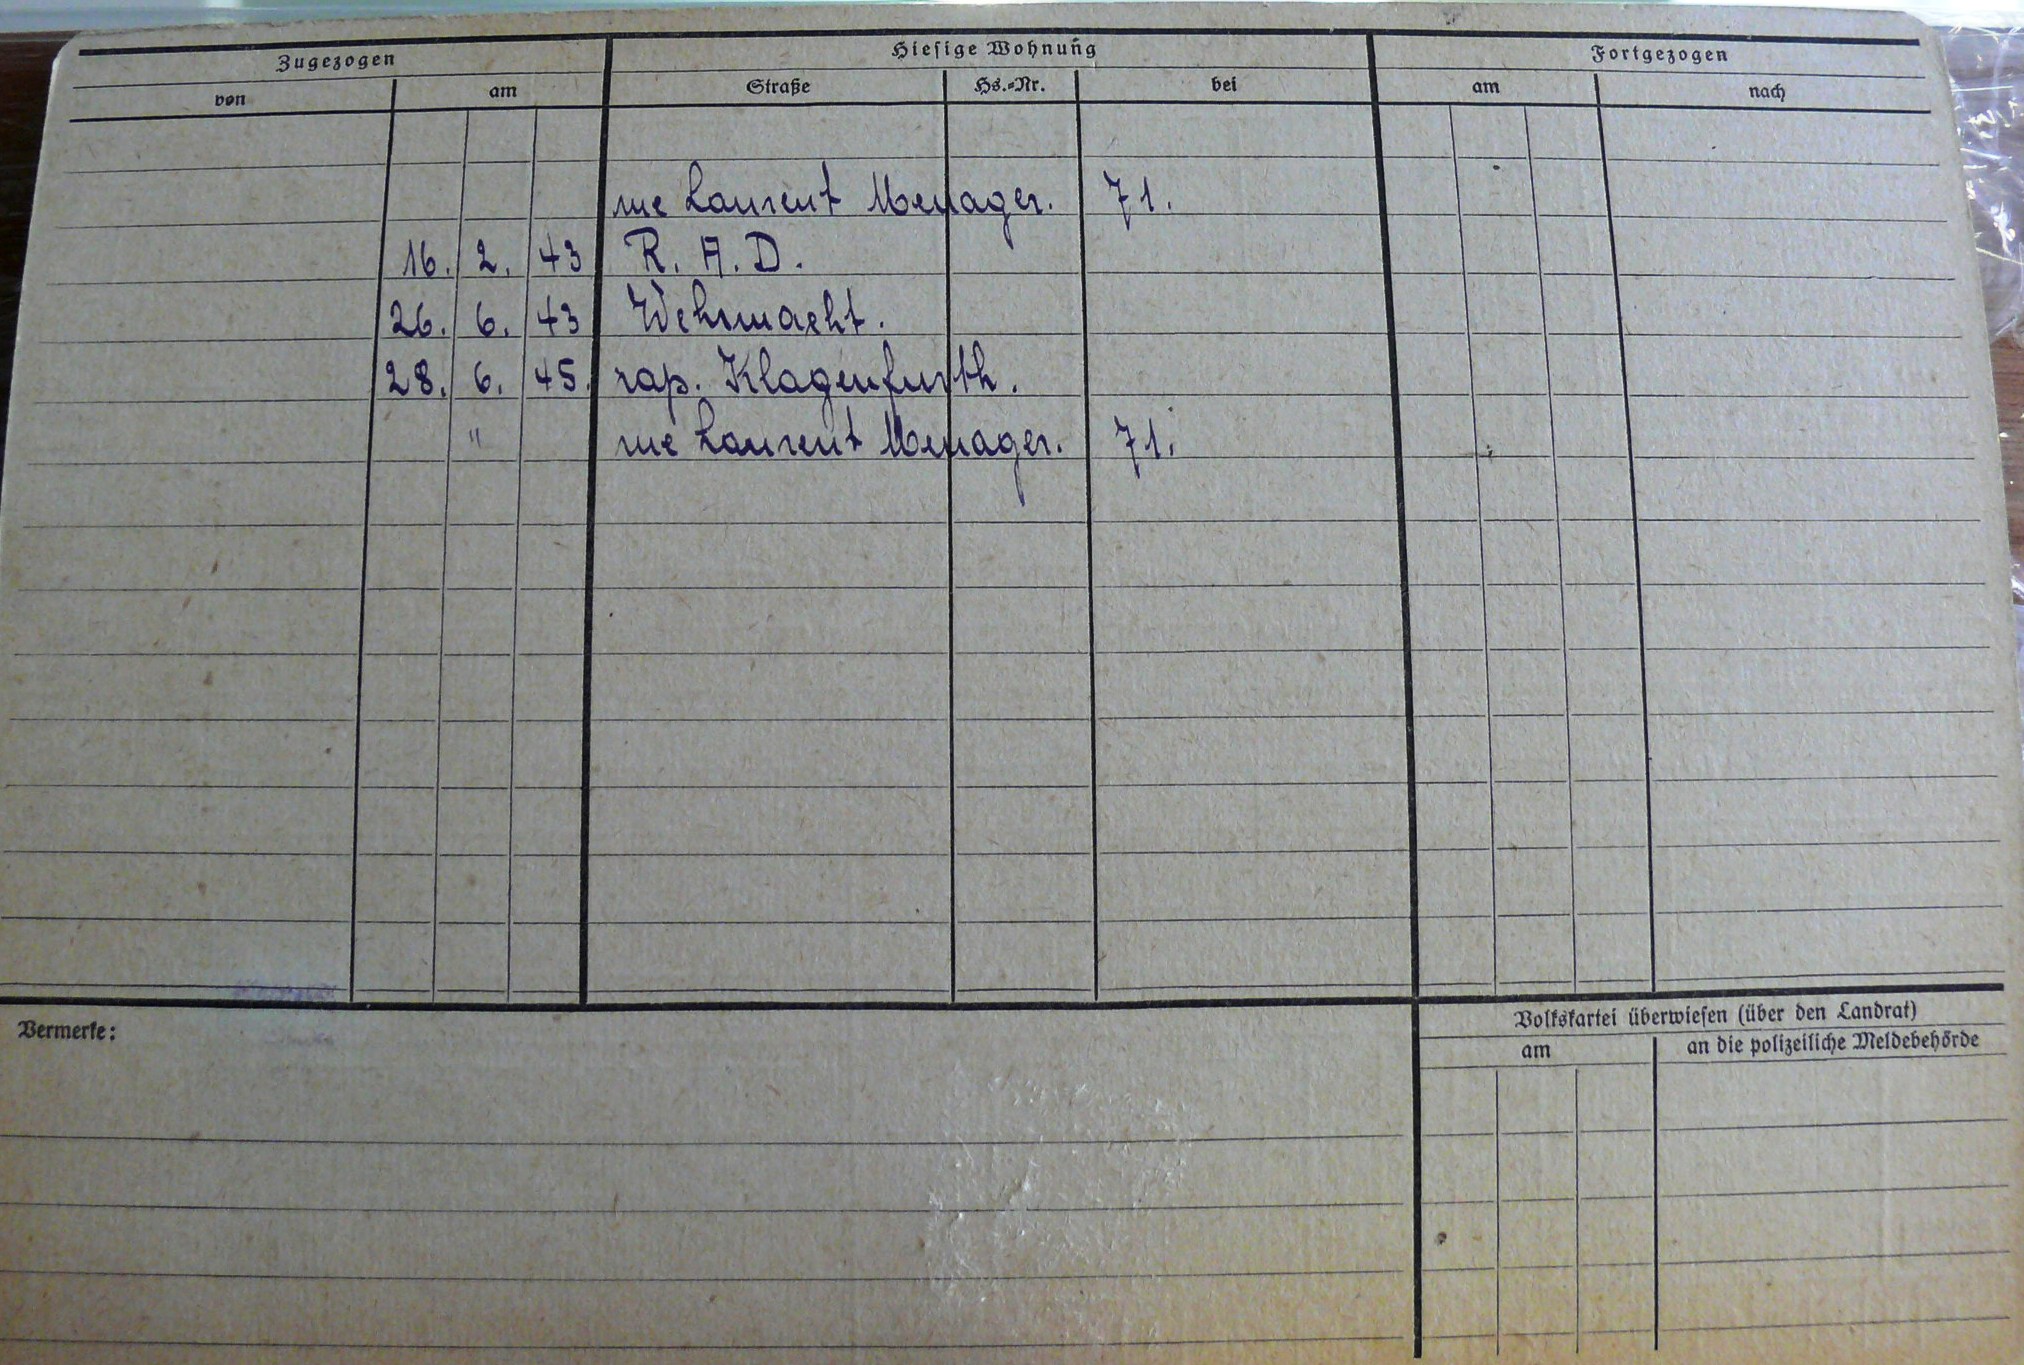 Zugezogen Hiesige Wohnung Fortgezogen
von am Straße Hs.-Nr. bei am nach
rue Laurent Menager. 71.
16. 2. 43 R. A. D.
26. 6. 43 Wehrmacht.
28. 6. 45. rap. Klagenfurth.
" rue Laurent Menager. 71.
Vermerke:
Volkskartei überwiesen (über den Landrat)
am an die polizeiliche Meldebehörde